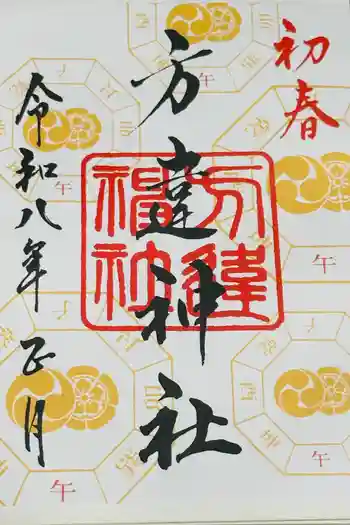 初春
方違神社
方違
神社
令和八年正月
午
午
午
午
午